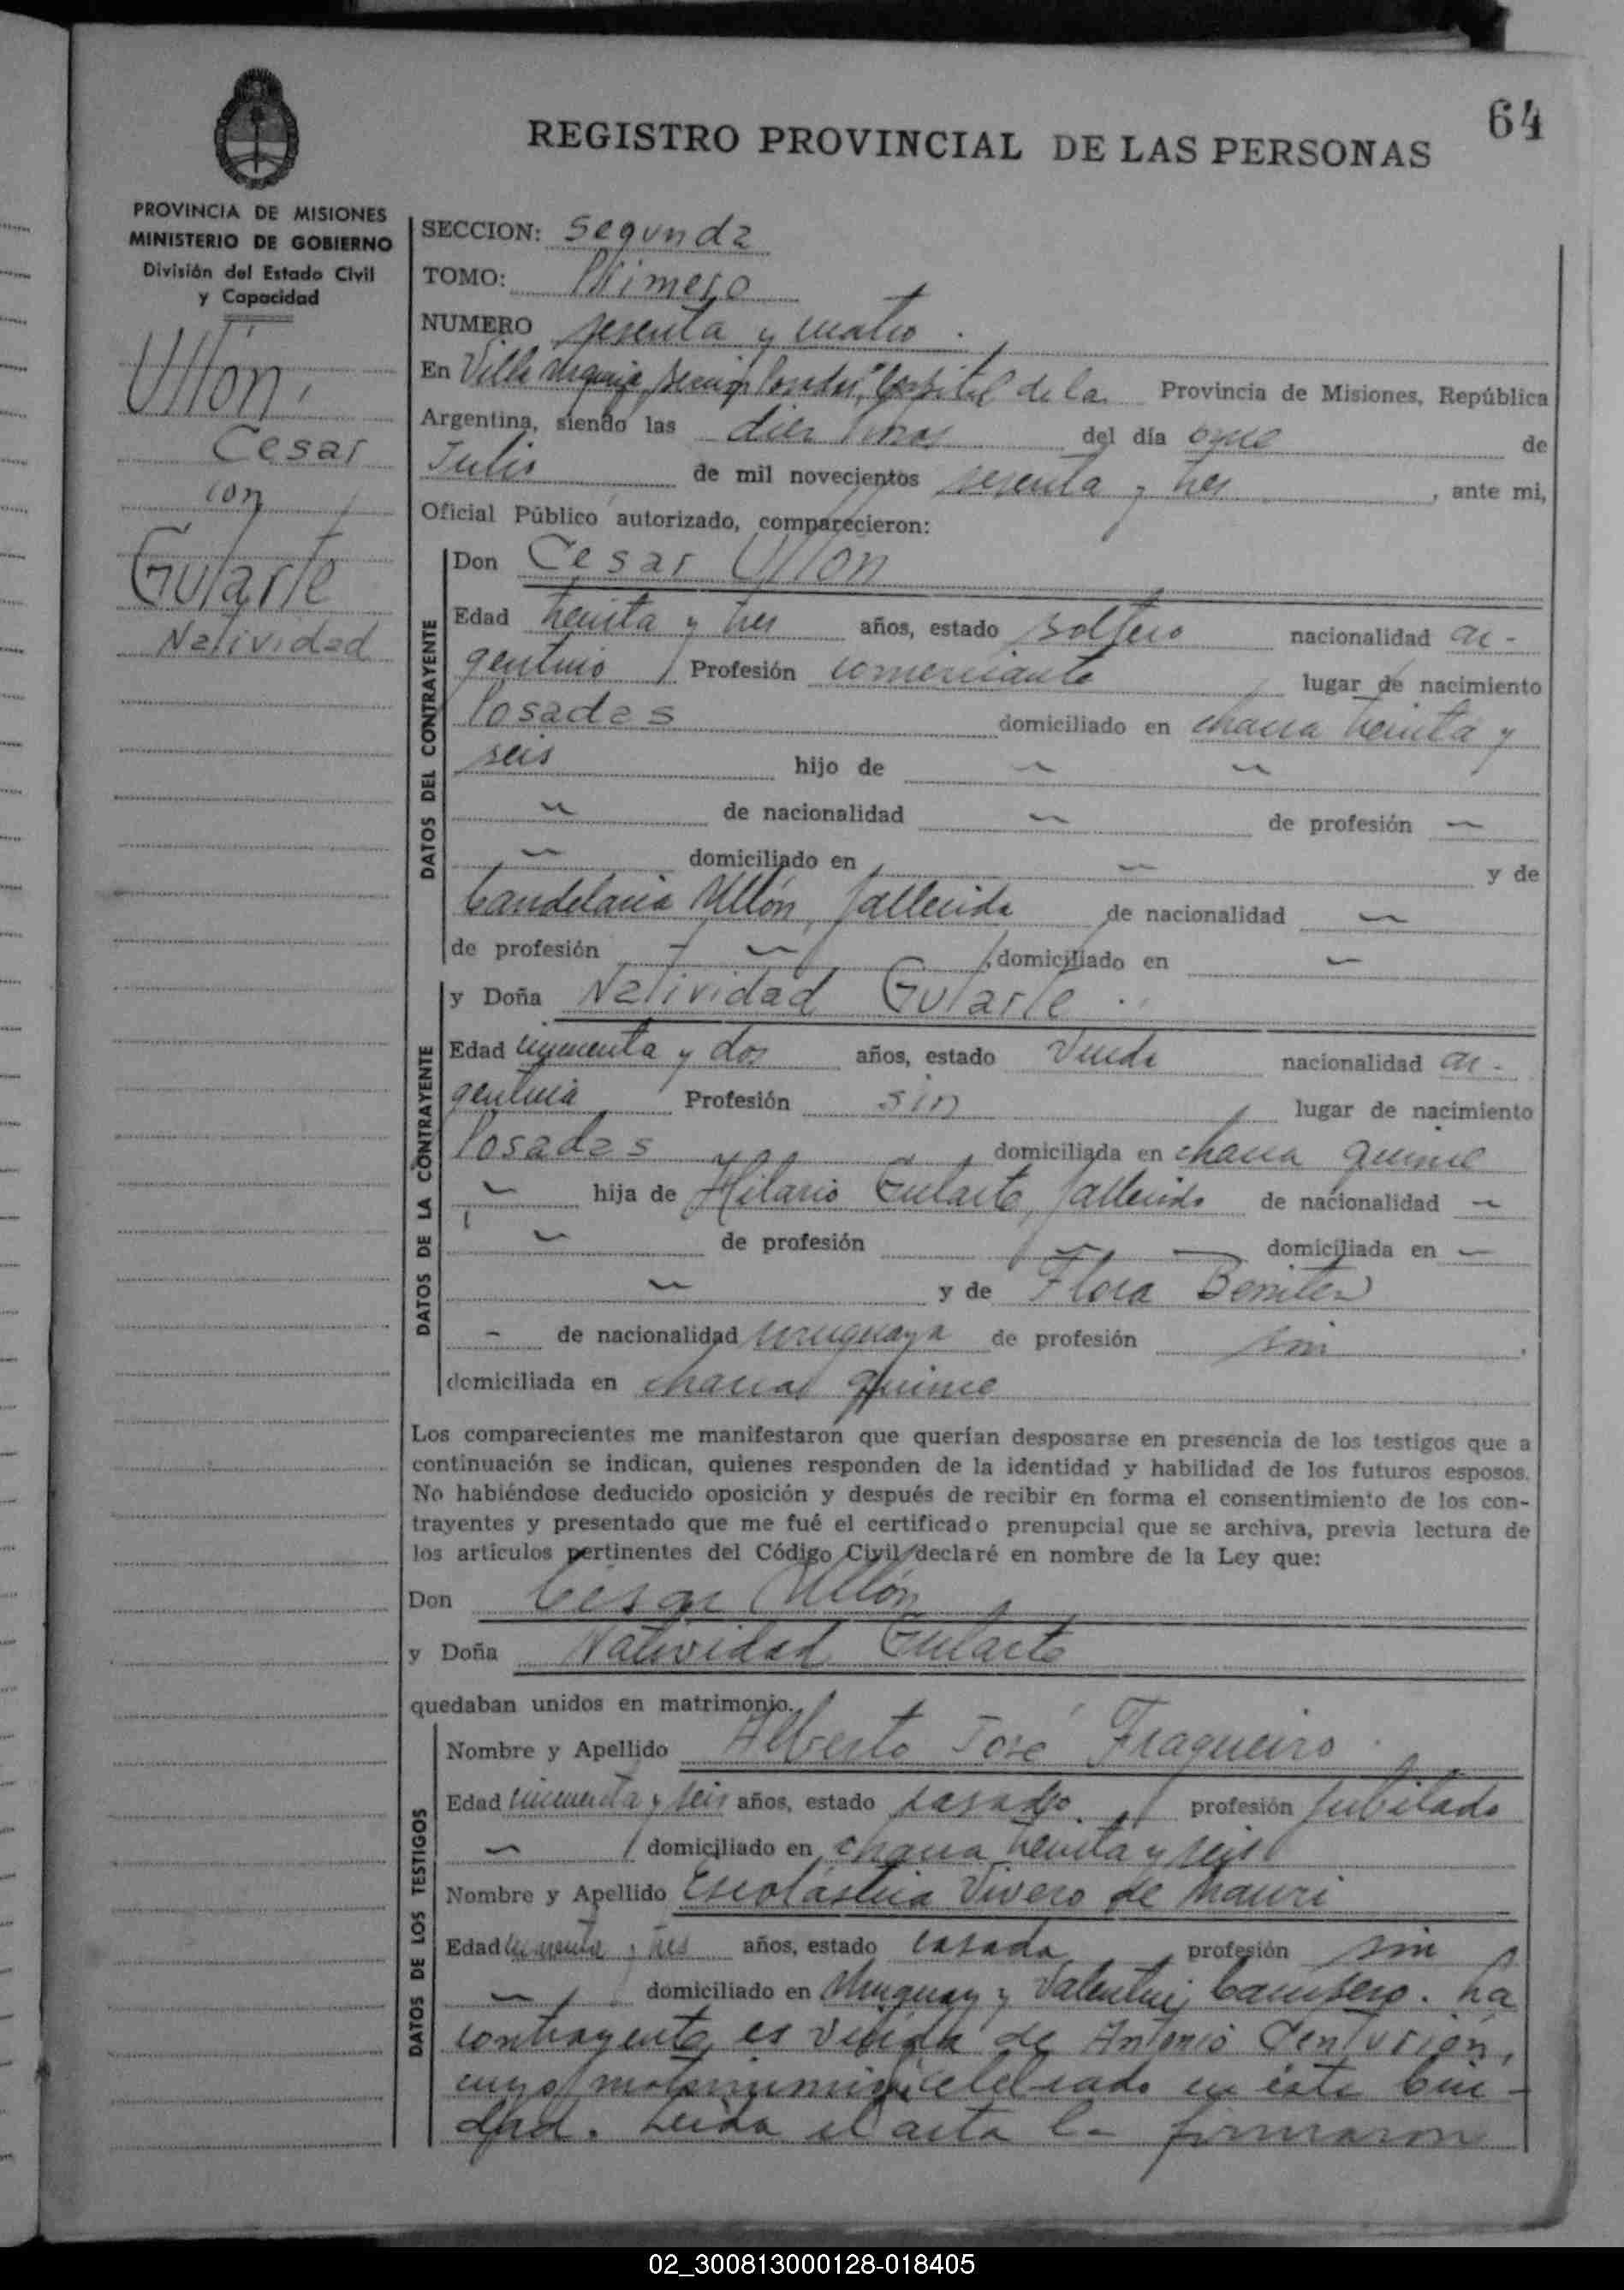 64
REGISTRO PROVINCIAL DE LAS PERSONAS
PROVINCIA DE MISIONES
MINISTERIO DE GOBIERNO
División del Estado Civil
y Capacidad
Ullón
Cesar
con
Gularte
Natividad
SECCION: Segunda
TOMO: Primero
NUMERO sesenta y cuatro.
En Villa Urquiza, Posadas, Capital de la Provincia de Misiones, República
Argentina, siendo las diez horas del día once de
Julio de mil novecientos sesenta y tres, ante mi,
Oficial Público autorizado, comparecieron:
DATOS DEL CONTRAYENTE
Don Cesar Ullón
Edad treinta y tres años, estado soltero nacionalidad ar-
gentino Profesión comerciante lugar de nacimiento
Posadas domiciliado en chacra treinta y
seis hijo de
de nacionalidad de profesión
domiciliado en y de
Candelaria Ullón, fallecida de nacionalidad
de profesión domiciliado en
DATOS DE LA CONTRAYENTE
y Doña Natividad Gularte
Edad cincuenta y dos años, estado viuda nacionalidad ar-
gentina Profesión sin lugar de nacimiento
Posadas domiciliada en chacra quince
hija de Hilario Gularte, fallecido de nacionalidad
de profesión domiciliada en
y de Flora Benitez
de nacionalidad uruguaya de profesión sin
domiciliada en chacra quince
Los comparecientes me manifestaron que querían desposarse en presencia de los testigos que a
continuación se indican, quienes responden de la identidad y habilidad de los futuros esposos.
No habiéndose deducido oposición y después de recibir en forma el consentimiento de los con-
trayentes y presentado que me fué el certificado prenupcial que se archiva, previa lectura de
los artículos pertinentes del Código Civil declaré en nombre de la Ley que:
Don Cesar Ullón
y Doña Natividad Gularte
quedaban unidos en matrimonio.
DATOS DE LOS TESTIGOS
Nombre y Apellido Alberto José Fragueiro
Edad cincuenta y seis años, estado casado profesión jubilado
domiciliado en chacra treinta y seis
Nombre y Apellido Escolástica Vivero de Mauri
Edad y tres años, estado casada profesión sin
domiciliado en Uruguay y Valentin . La
contrayente es viuda de Antonio Centurión,
cuyo matrimonio celebrado en esta Ciu-
dad. Leida el acta la firmaron
02_300813000128-018405